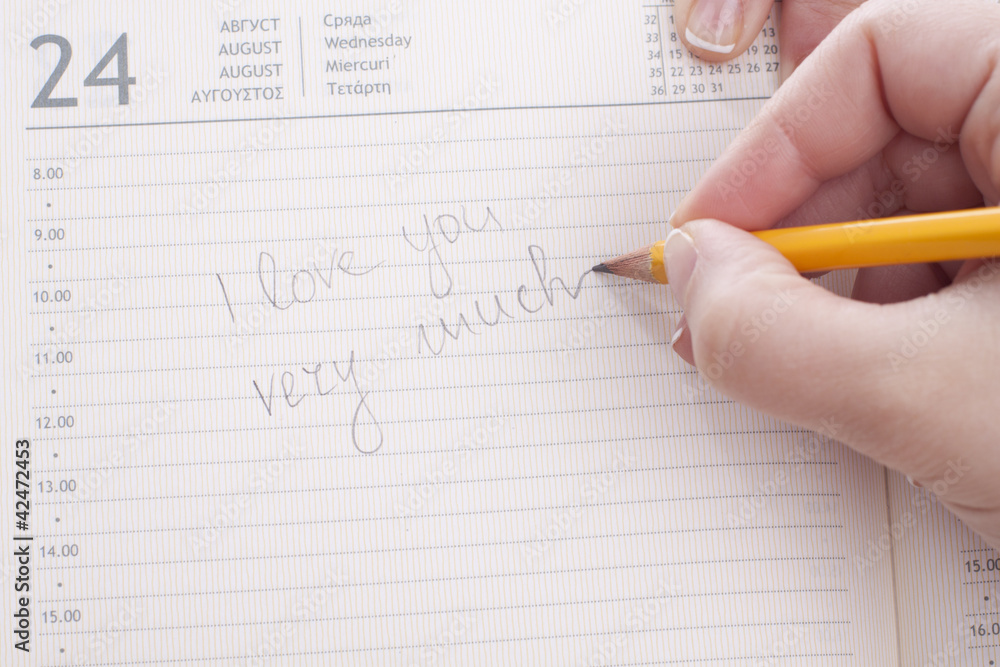 24
АВГУСТ
AUGUST
AUGUST
ΑΥΓΟΥΣΤΟΣ
Сряда
Wednesday
Miercuri
Τετάρτη
32
33 8 13
34 15 20
35 22 23 24 25 26 27
36 29 30 31
8.00
9.00
10.00
11.00
12.00
13.00
14.00
15.00
I love you
very much
15.00
16.0
Adobe Stock | #42472453